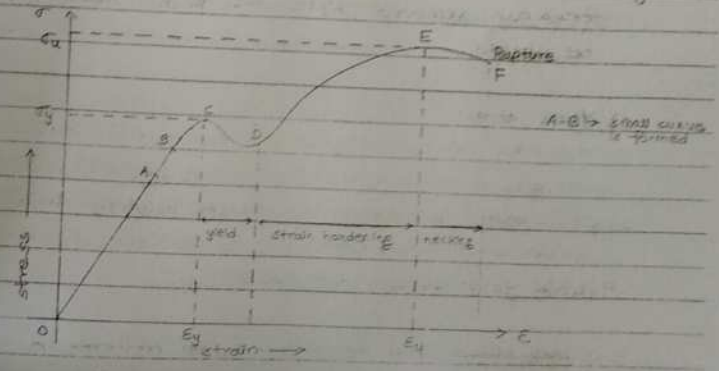 σ
σu
E
Rapture
F
σy
C
A-B → small curve is formed
B
D
A
yield
strain hardening
necking
stress →
O
εy
strain →
εu
ε